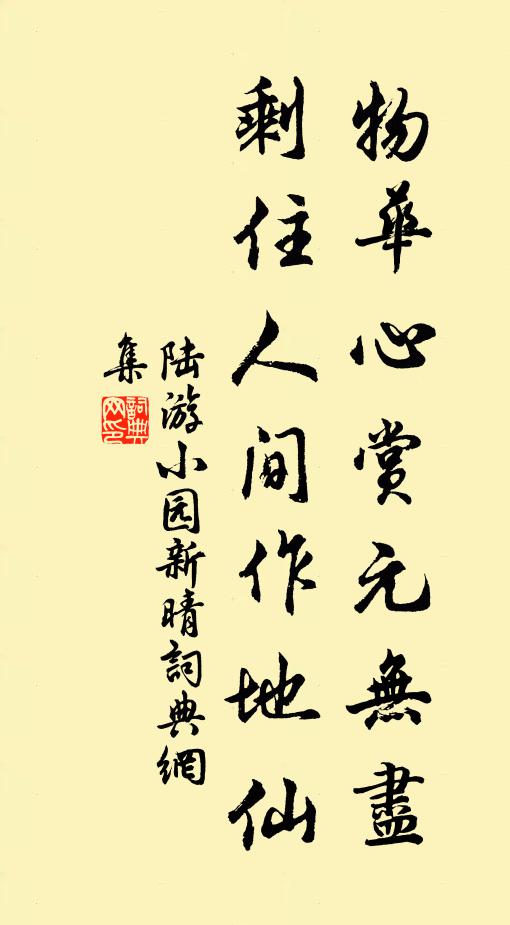 物華心賞元無盡
剩住人間作地仙
陆游小园新晴詞典網
集
詞典網印